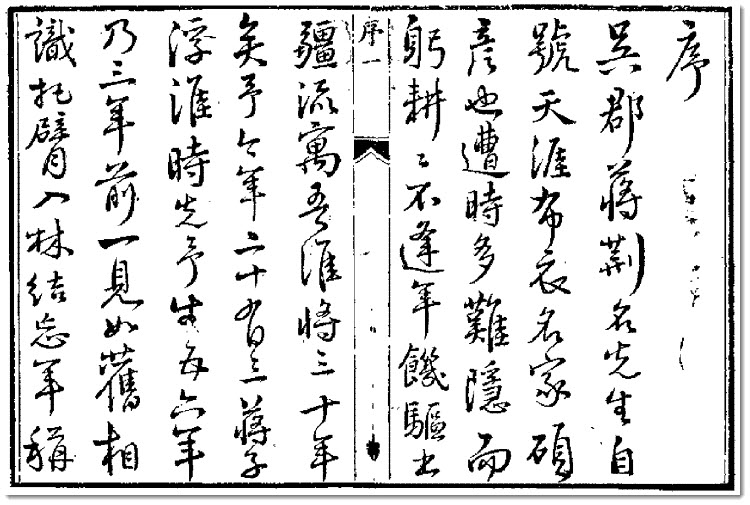 序
吳郡蔣荆名先生自
號天涯布衣名家碩
彦也遭時多難隱而
躬耕〻不逢年饑驅出
序一
疆流寓吾淮將三十年
矣予今年二十有三蔣子
浮淮時先予生六年
乃三年前一見如舊相
識把臂入林結忘年稱